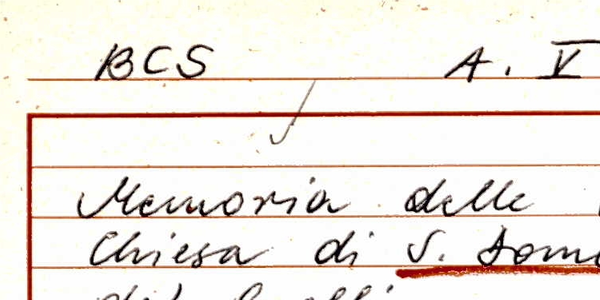 BCS A. V
Memoria delle
Chiesa di S. Dome